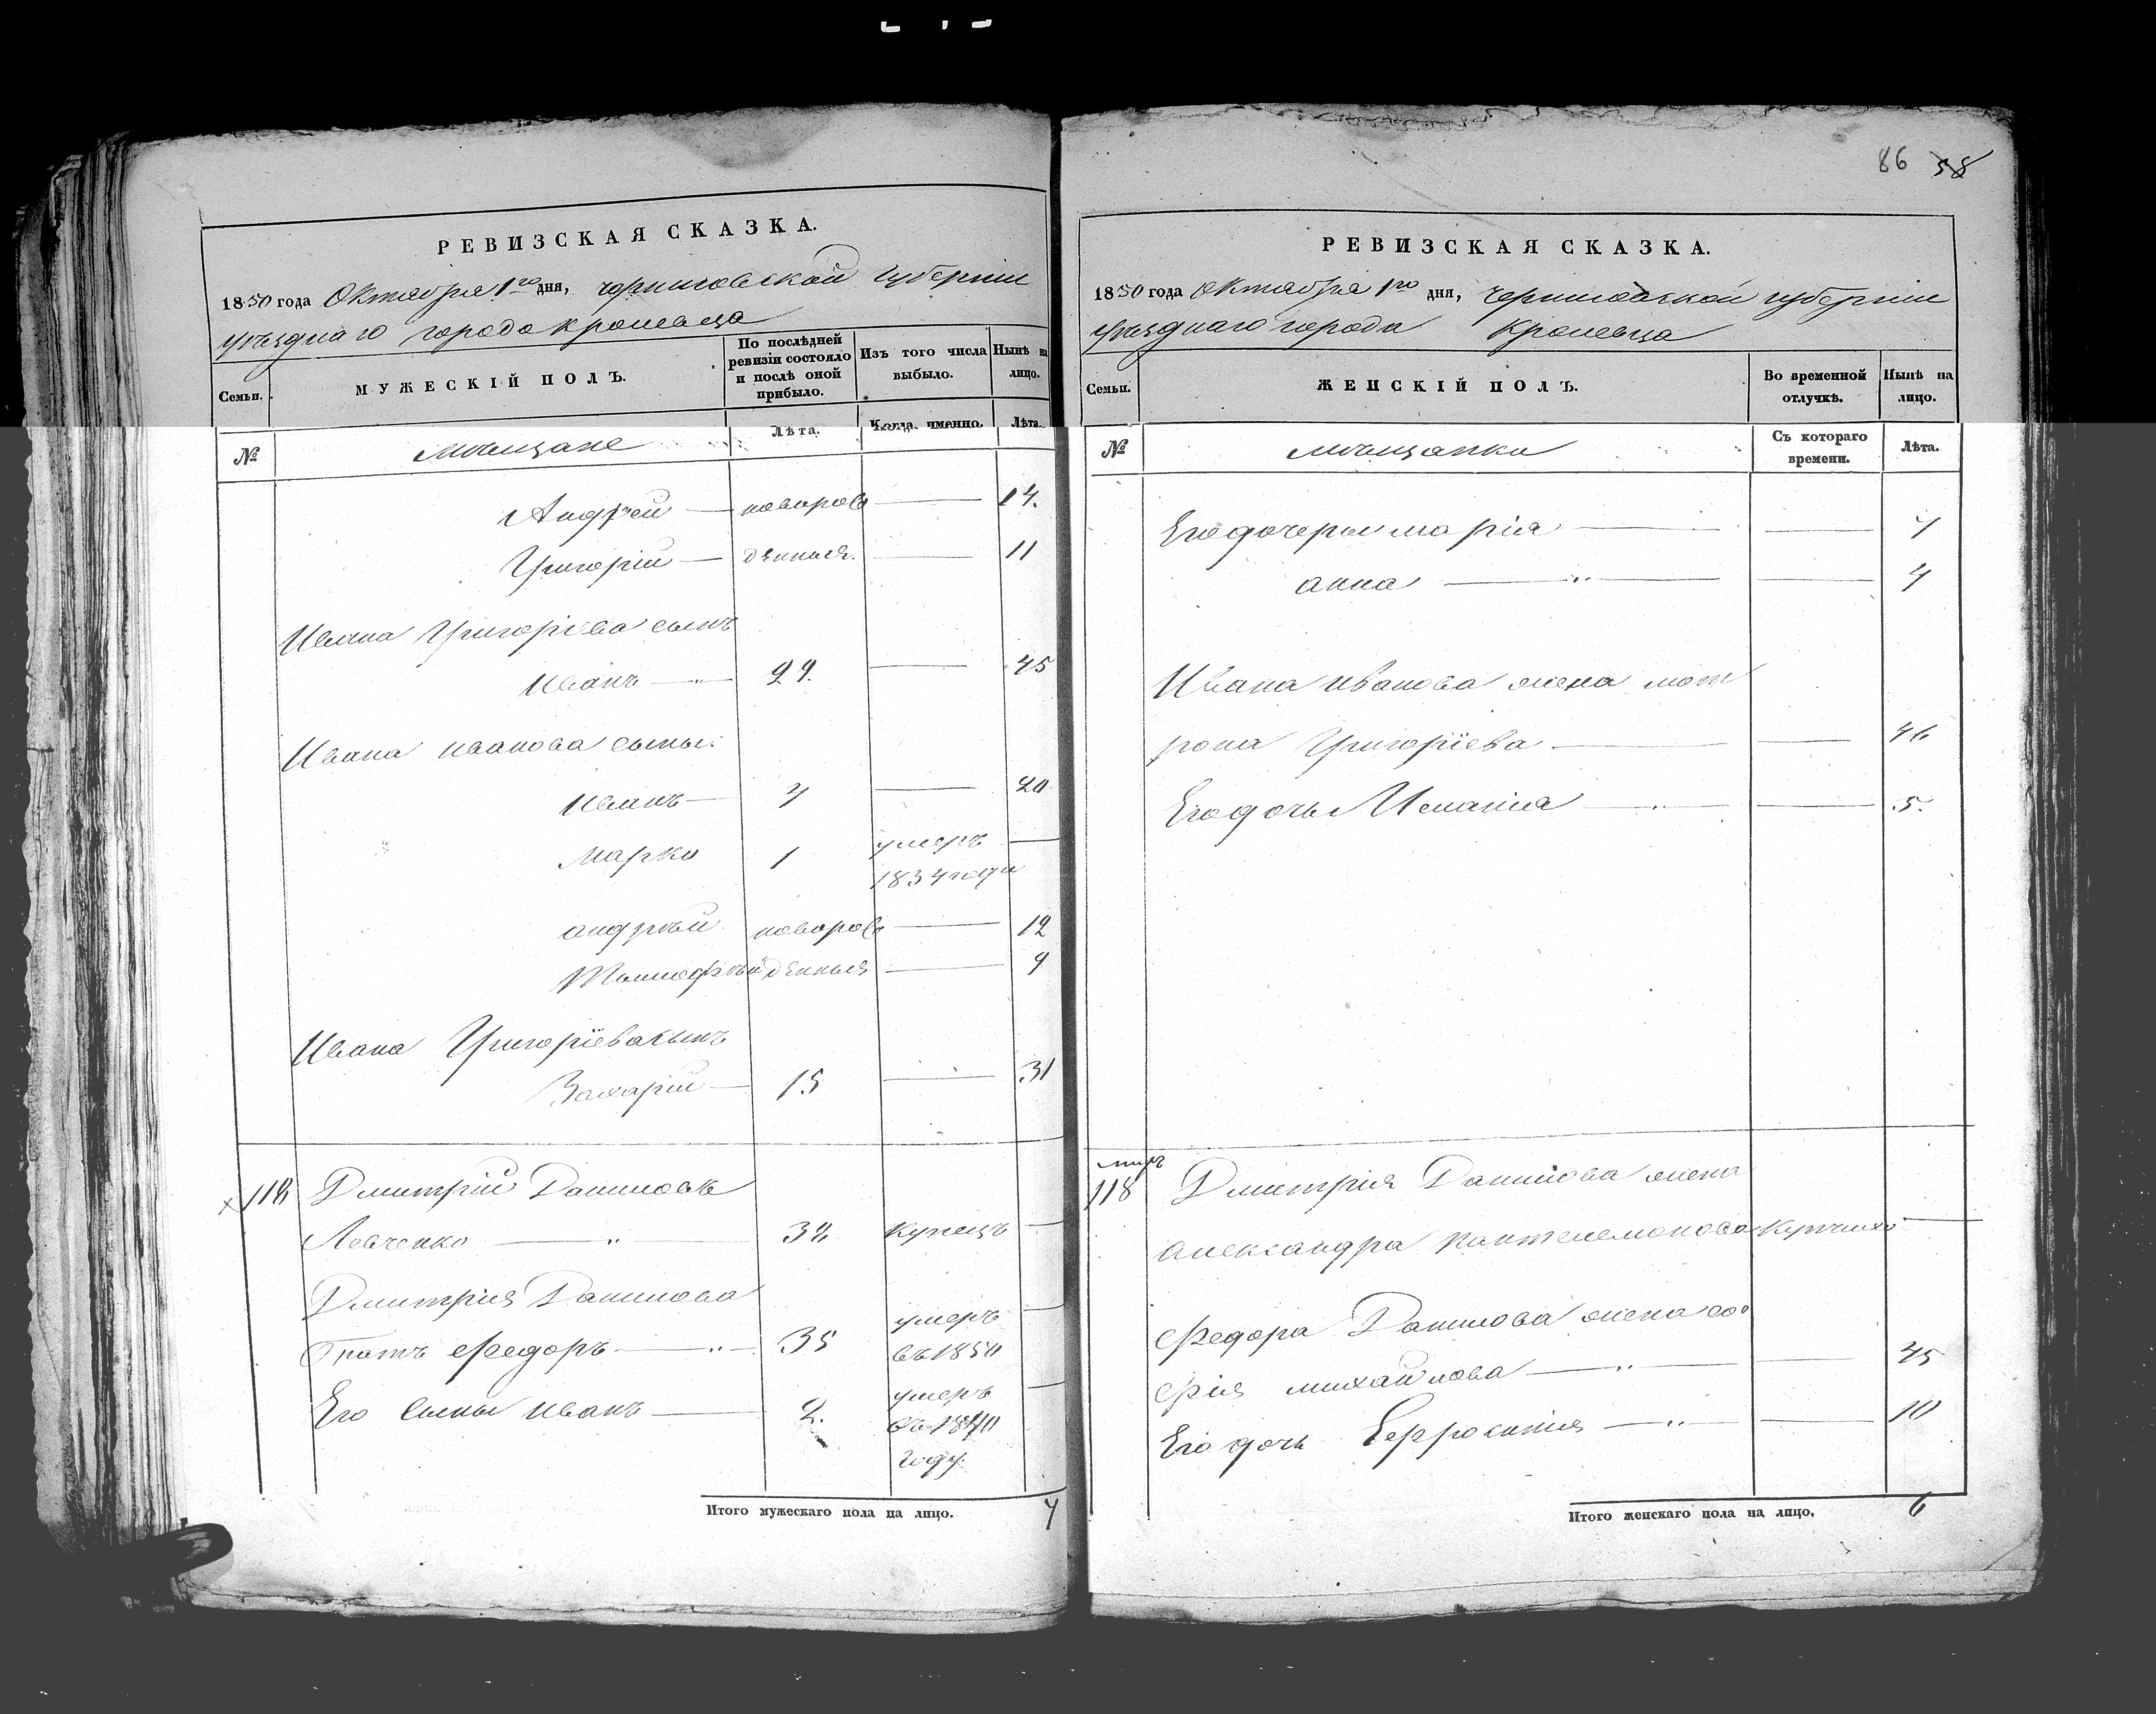 86 58
РЕВИЗСКАЯ СКАЗКА.
1850 года Октября 1го дня, черниговской губернии
уѣзднаго города Кролевца
Семьи.
МУЖЕСКІЙ ПОЛЪ.
По послѣдней ревизіи состояло и послѣ оной прибыло.
Изъ того числа выбыло.
Нынѣ на лицо.
№
мѣщане
Лѣта.
Когда именно.
Лѣта.
Андрей — новорож — 14.
Григорій — денныя. — 11
Ивана Григорьева сынъ
Иванъ — 29. — 45
Ивана иванова сыны:
Иванъ — 4 — 20
Марко 1 умеръ —
1834 года
андрѣй новорож — 12
Тимофѣй денныя — 9
Ивана Григорїева сынъ
Захарій — 15 — 31
118 Дмитрій Даниловъ
Левченко — 32 Купецъ —
Дмитрия Данилова
братъ Федоръ — 35 умеръ —
въ 1850
Его сыны иванъ — 2. умеръ —
въ 1840
году
Итого мужескаго пола на лицо. 7
РЕВИЗСКАЯ СКАЗКА.
1850 года Октября 1го дня, Черниговской губерніи
уѣзднаго города Кролевца
Семьи.
ЖЕНСКІЙ ПОЛЪ.
Во временной отлучкѣ.
Нынѣ на лицо.
№
мѣщанки
Съ котораго времени.
Лѣта.
Его дочери марія — — 7
анна — — 4
Ивана иванова жена мот
рона Григорїева — — 46
Его дочь — — 5.
118 Дмитрия Данилова жена
александра Пантелемонова Купчиха —
Федора Данилова жена со
фія михайлова — — 45
Его дочь Ефросинія — — 10
Итого женскаго пола на лицо. 6